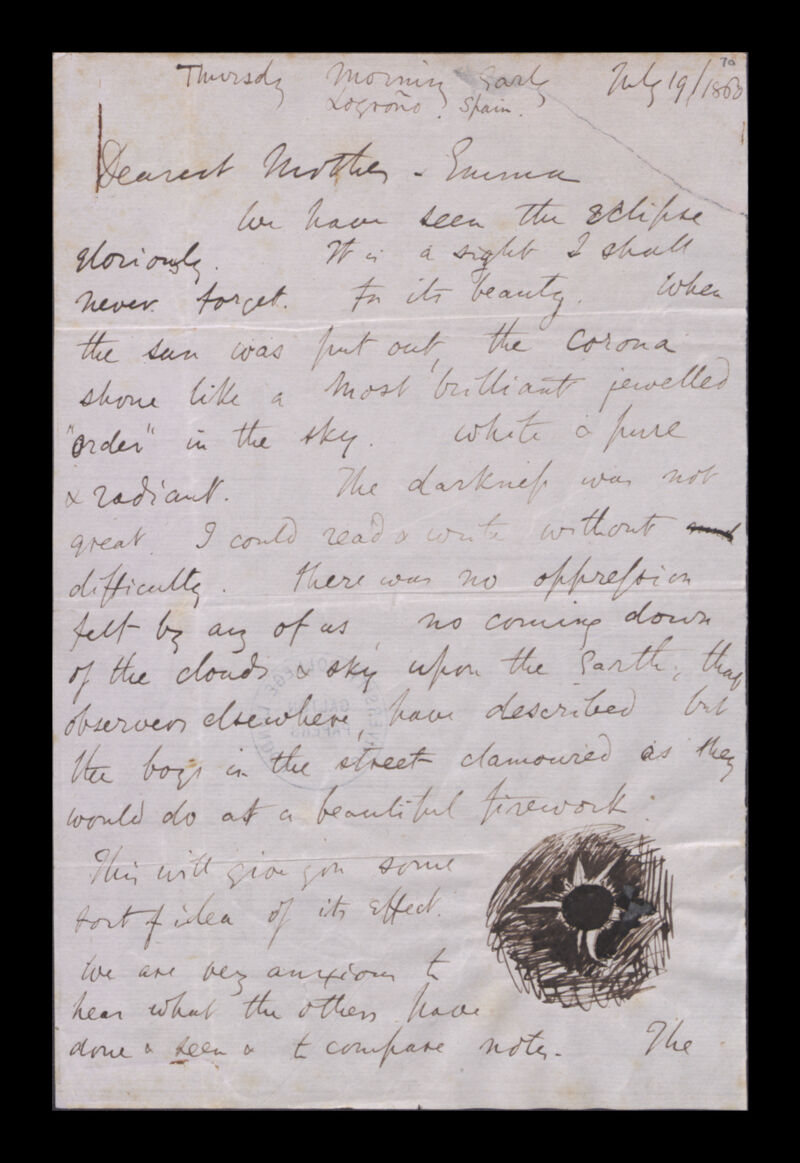 70
Thursdy Morning Early July 19/1860
Logroño. Spain.
Dearest Mother - Emma
We have seen the Eclipse
gloriously. It is a sight I shall
never forget. for its beauty. When
the sun was put out, the corona
shone like a most brilliant jewelled
"order" in the sky. white & pure
& radiant. The darkness was not
great. I could read & write without
difficulty. There was no oppression
felt by any of us, no coming down
of the clouds & sky upon the Earth, that
observers elsewhere, have described but
the boys in the street clamoured as they
would do at a beautiful firework.
This will give you some
sort of idea of its effect.
We are very anxious to
hear what the others have
done & seen & to compare notes. The
COLLEGE LONDON
GALTON
PAPERS